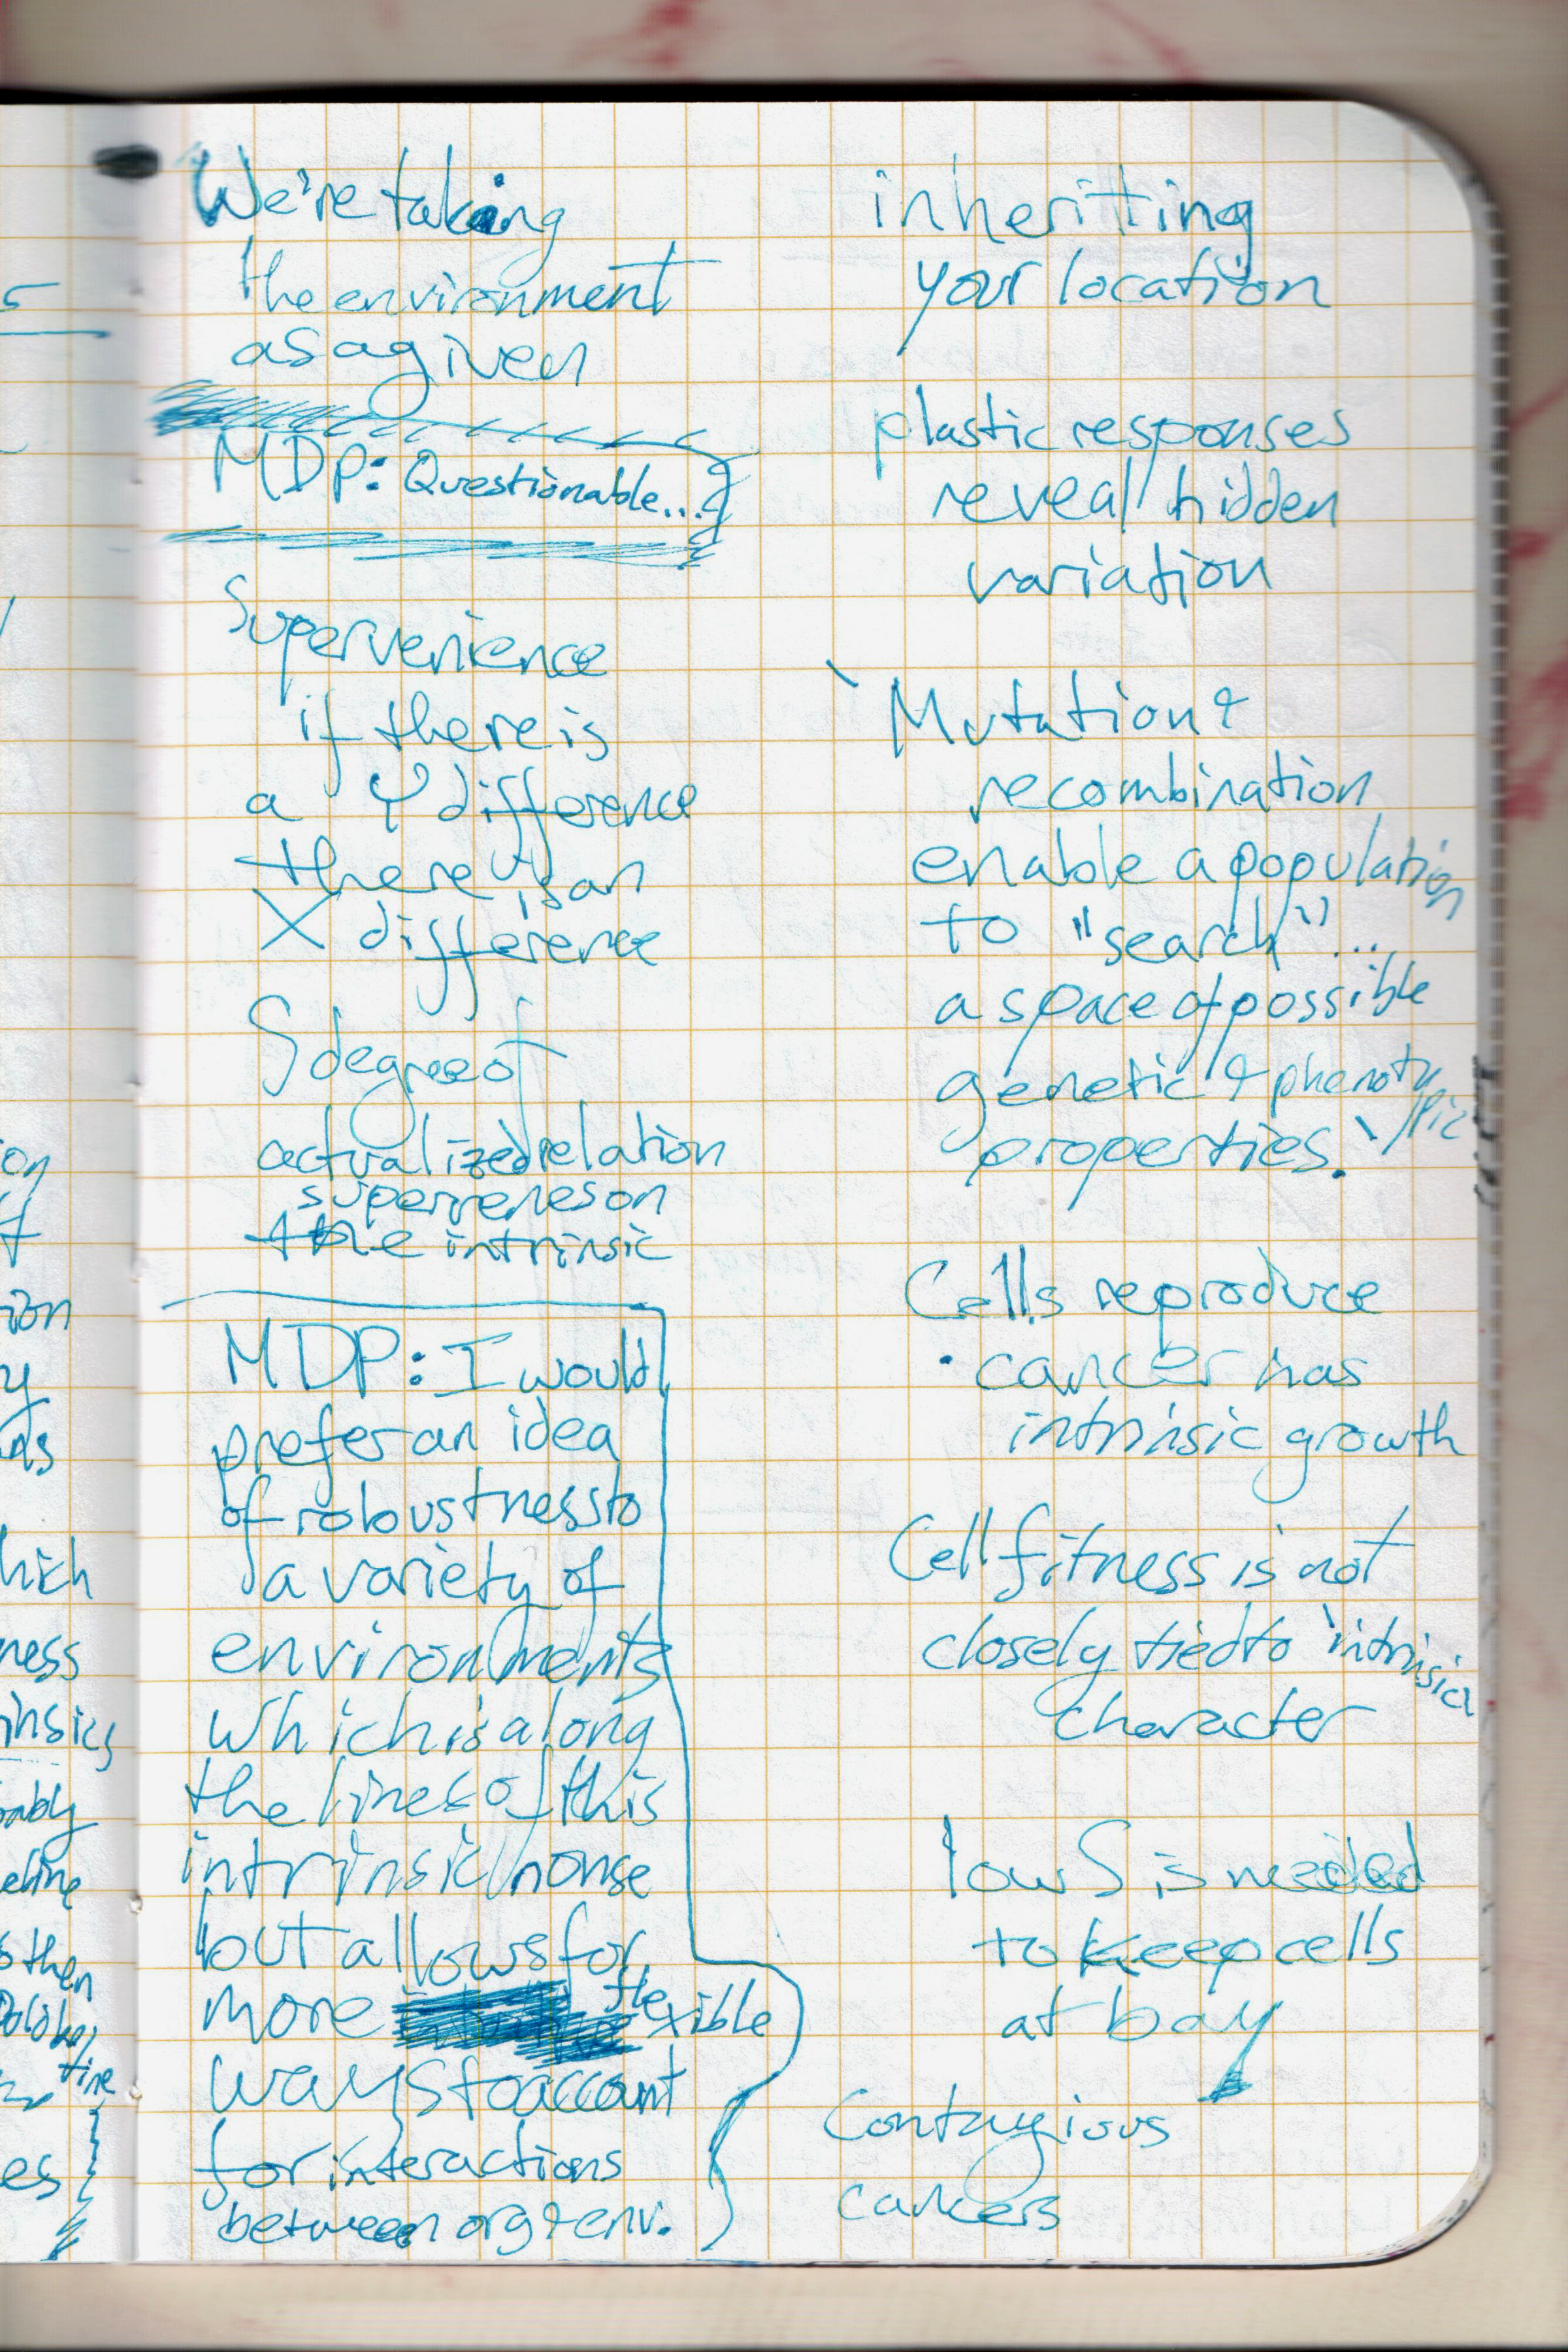 We're taking
the environment
as a given
MDP: Questionable...
Supervenience
if there is
a Y difference
there is an
X difference
S degree of
actualized relation
supervenes on
the intrinsic
MDP: I would
prefer an idea
of robustness to
a variety of
environments
which is along
the lines of this
intrinsic nonse
but allows for
more flexible
ways to account
for interactions
between org & env.
inheritting
your location
plastic responses
reveal hidden
variation
`Mutation &
recombination
enable a population
to "search"...
a space of possible
genetic & phenotypic
properties.`
Cells reproduce
· cancer has
intrinsic growth
Cell fitness is not
closely tied to 'intrinsic'
character
low S is needed
to keep cells
at bay
Contagious
cancers